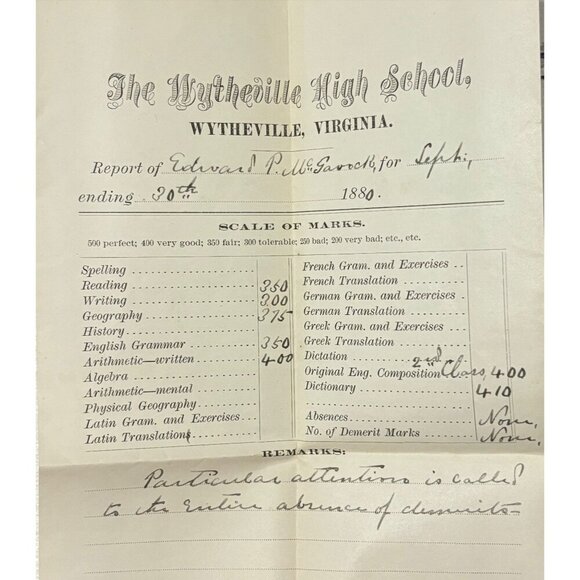 The Wytheville High School,
WYTHEVILLE, VIRGINIA.
Report of Edward P. McGavock, for Sept.,
ending 30th 1880.
SCALE OF MARKS.
500 perfect; 400 very good; 350 fair; 300 tolerable; 250 bad; 200 very bad; etc., etc.
Spelling
Reading 350
Writing 300
Geography 375
History
English Grammar 350
Arithmetic—written 400
Algebra
Arithmetic—mental
Physical Geography
Latin Gram. and Exercises
Latin Translations
French Gram. and Exercises
French Translation
German Gram. and Exercises
German Translation
Greek Gram. and Exercises
Greek Translation
Dictation
Original Eng. Composition 2nd Class, 400
Dictionary 410
Absences None.
No. of Demerit Marks None.
REMARKS:
Particular attention is called
to the entire absence of demerits